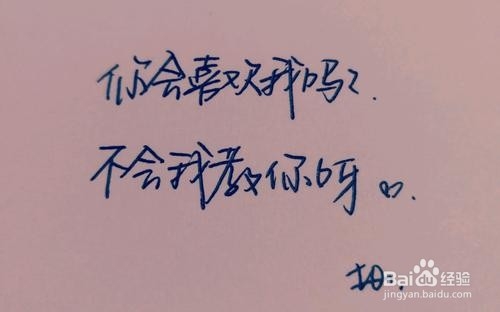 你会喜欢我吗?.
不会我教你呀。.
Bai 经验
jingyan.baidu.com